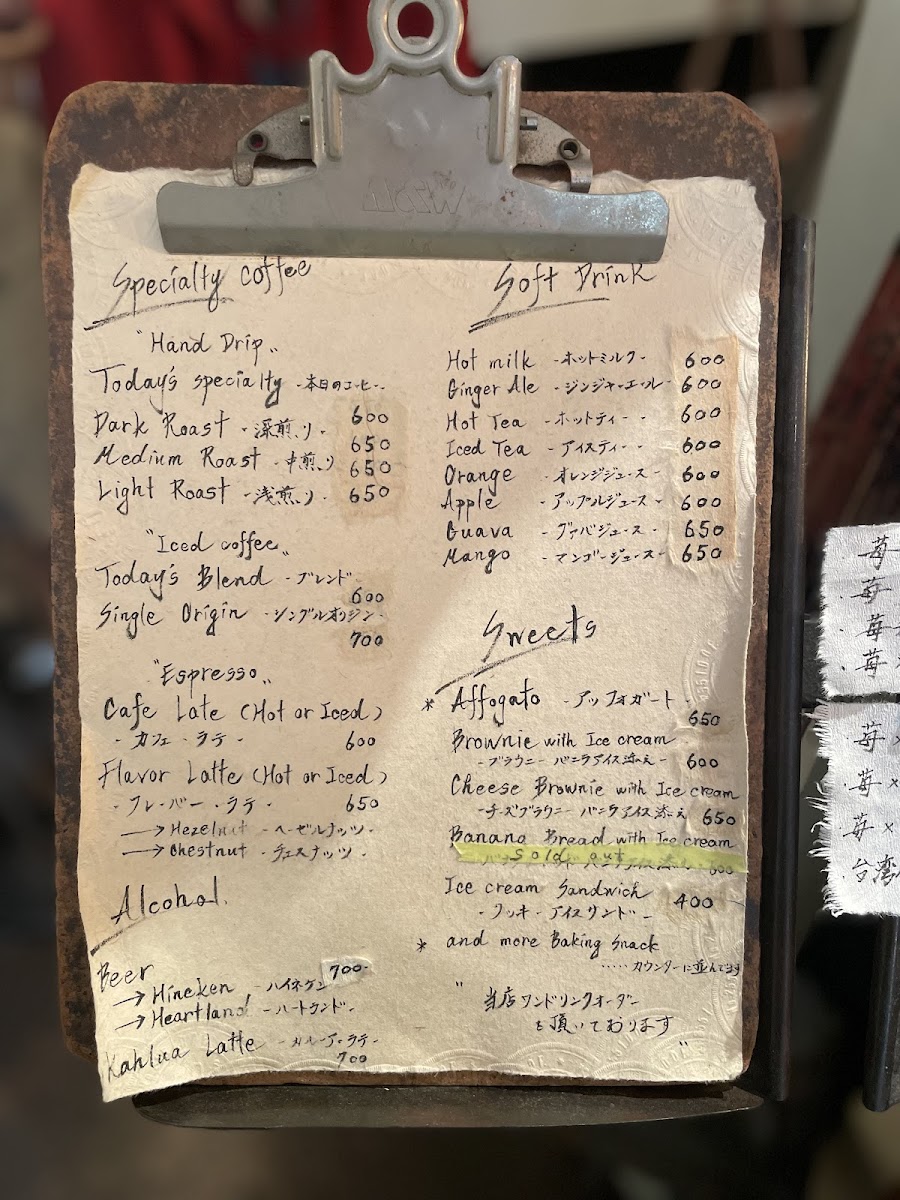 Specialty coffee
"Hand Drip"
Today's specialty -本日のコーヒー-
600
Dark Roast -深煎り- 650
Medium Roast -中煎り- 650
Light Roast -浅煎り- 650
"Iced coffee"
Today's Blend -ブレンド-
600
Single Origin -シングルオリジン-
700
"Espresso"
Cafe Late (Hot or Iced)
-カフェ・ラテ- 600
Flavor Latte (Hot or Iced)
-フレーバー・ラテ- 650
→ Hezelnut -ヘーゼルナッツ-
→ Chestnut -チェスナッツ-
Alcohol
Beer 700-
→ Hineken -ハイネケン
→ Heartland -ハートランド-
Kahlua Latte -カルーア・ラテ-
700
Soft Drink
Hot milk -ホットミルク- 600
Ginger Ale -ジンジャーエール- 600
Hot Tea -ホットティー- 600
Iced Tea -アイスティー- 600
Orange -オレンジジュース- 600
Apple -アップルジュース- 600
Guava -グァバジュース- 650
Mango -マンゴージュース- 650
Sweets
* Affogato -アッフォガート-
650
Brownie with Ice cream
-ブラウニー バニラアイス添え- 600
Cheese Brownie with Ice cream
-チーズブラウニー バニラアイス添え 650
Banana Bread with Ice cream
Sold out
600
Ice cream Sandwich 400
-クッキーアイスサンド-
* and more Baking Snack
……カウンターに並んでます
"当店ワンドリンクオーダー
を頂いております"
・苺
・苺
・苺
・苺
・苺×
・苺×
・苺×
・台湾